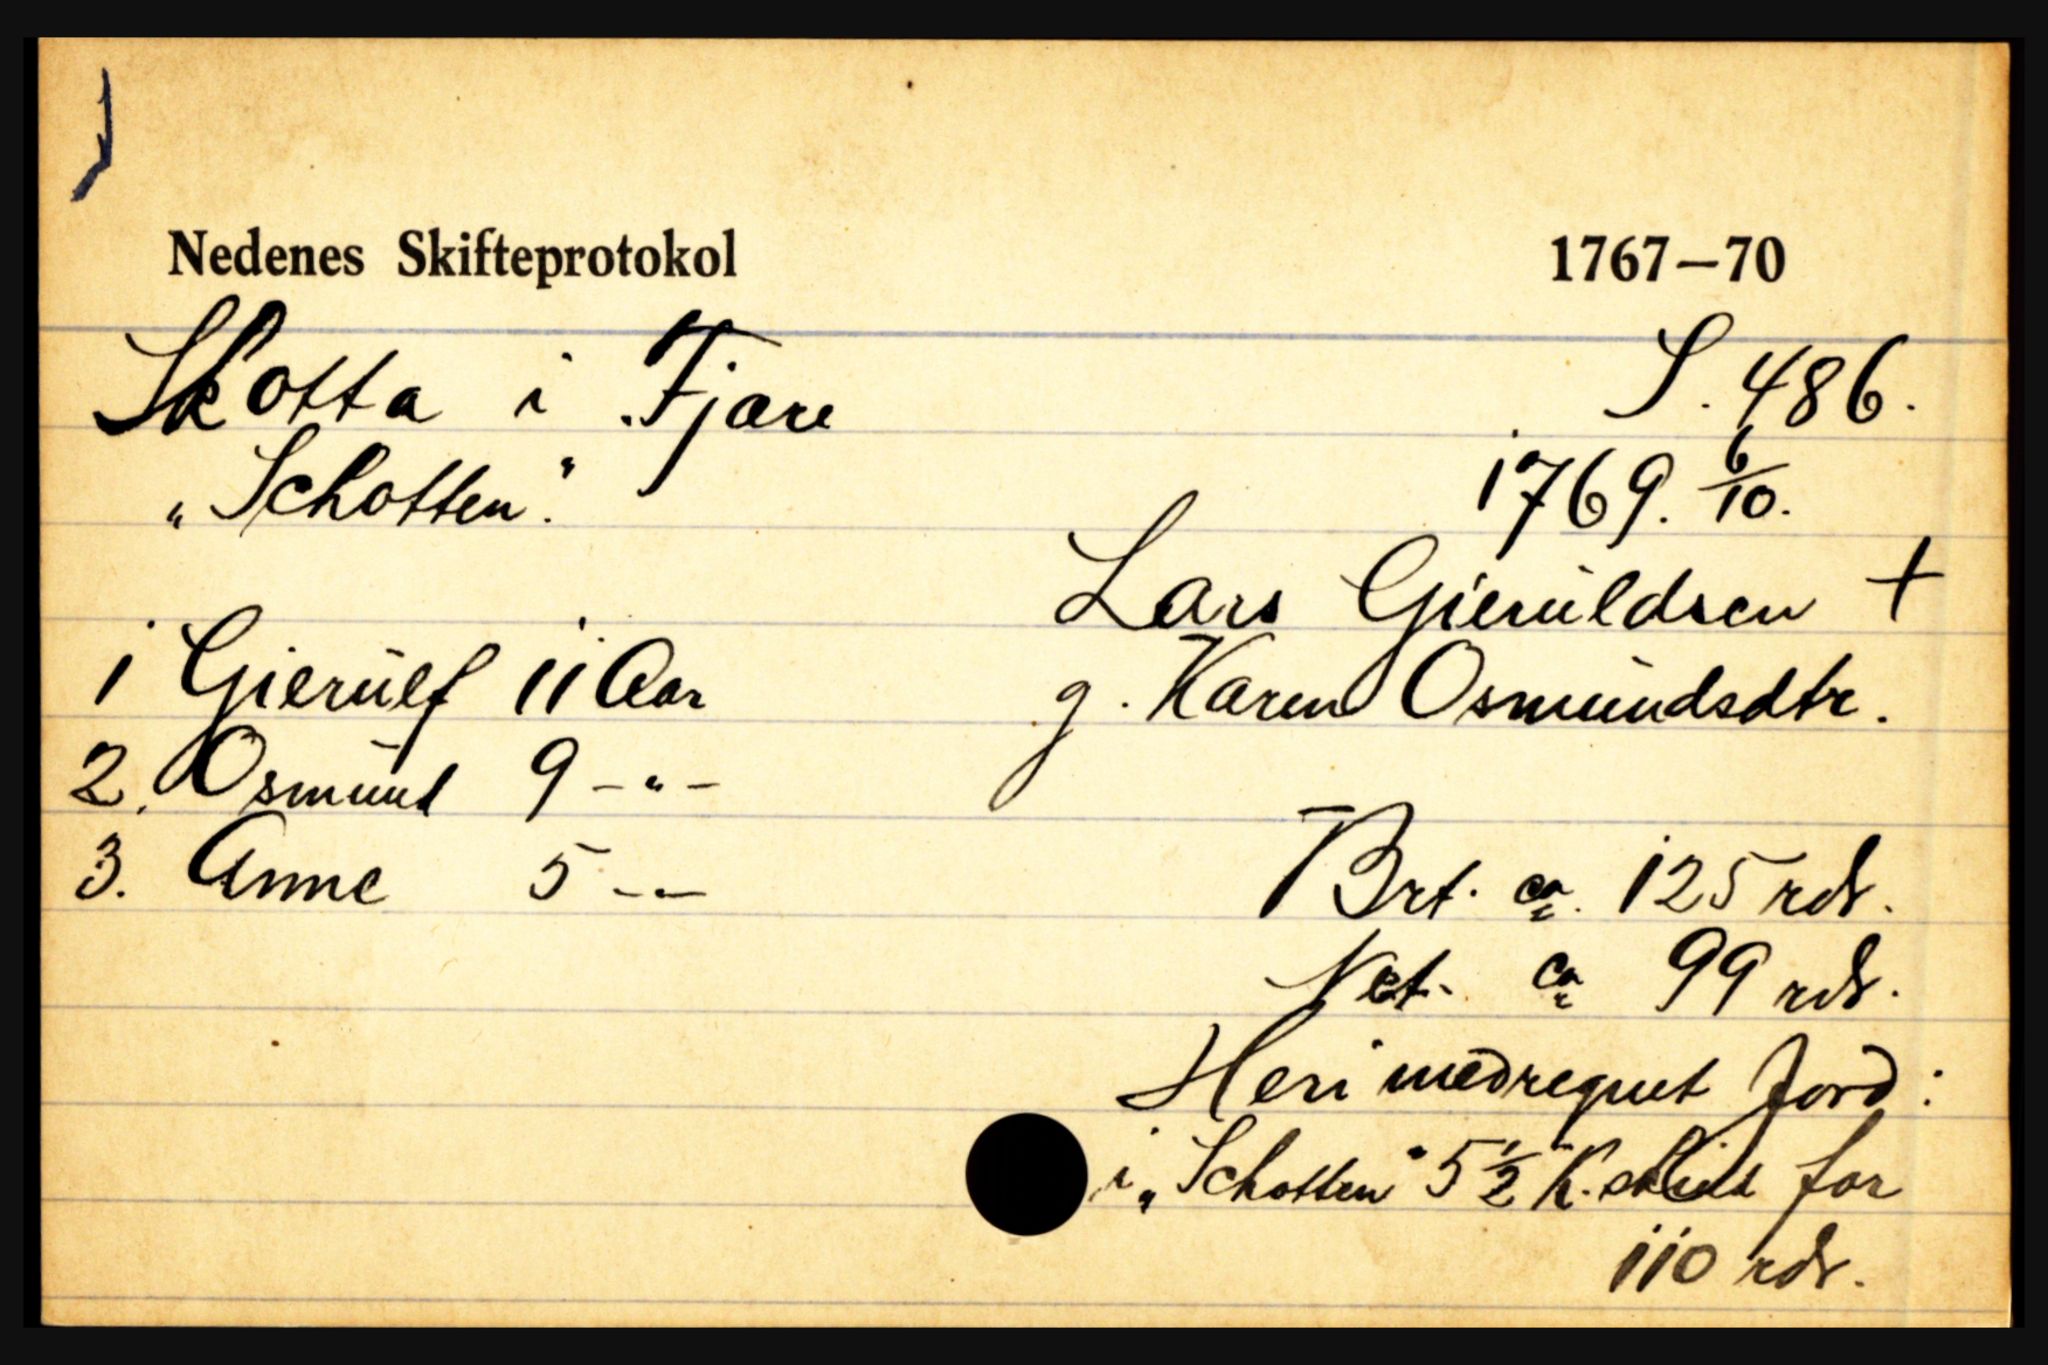 Nedenes Skifteprotokol 1767–70
Skotta i Fjære S. 486.
"Schotten". 1769. 6/10.
Lars Gierúldsen +
1 Gierúlf 11 Aar g. Karen Osmúndsdtr.
2. Osmúnd 9 - " -
3. Anne 5 - - Brt. ca. 125 rdr.
Net. ca 99 rdr.
Heri medregnet Jord:
i "Schotten" 5 1/2 K. skind for
110 rdr.